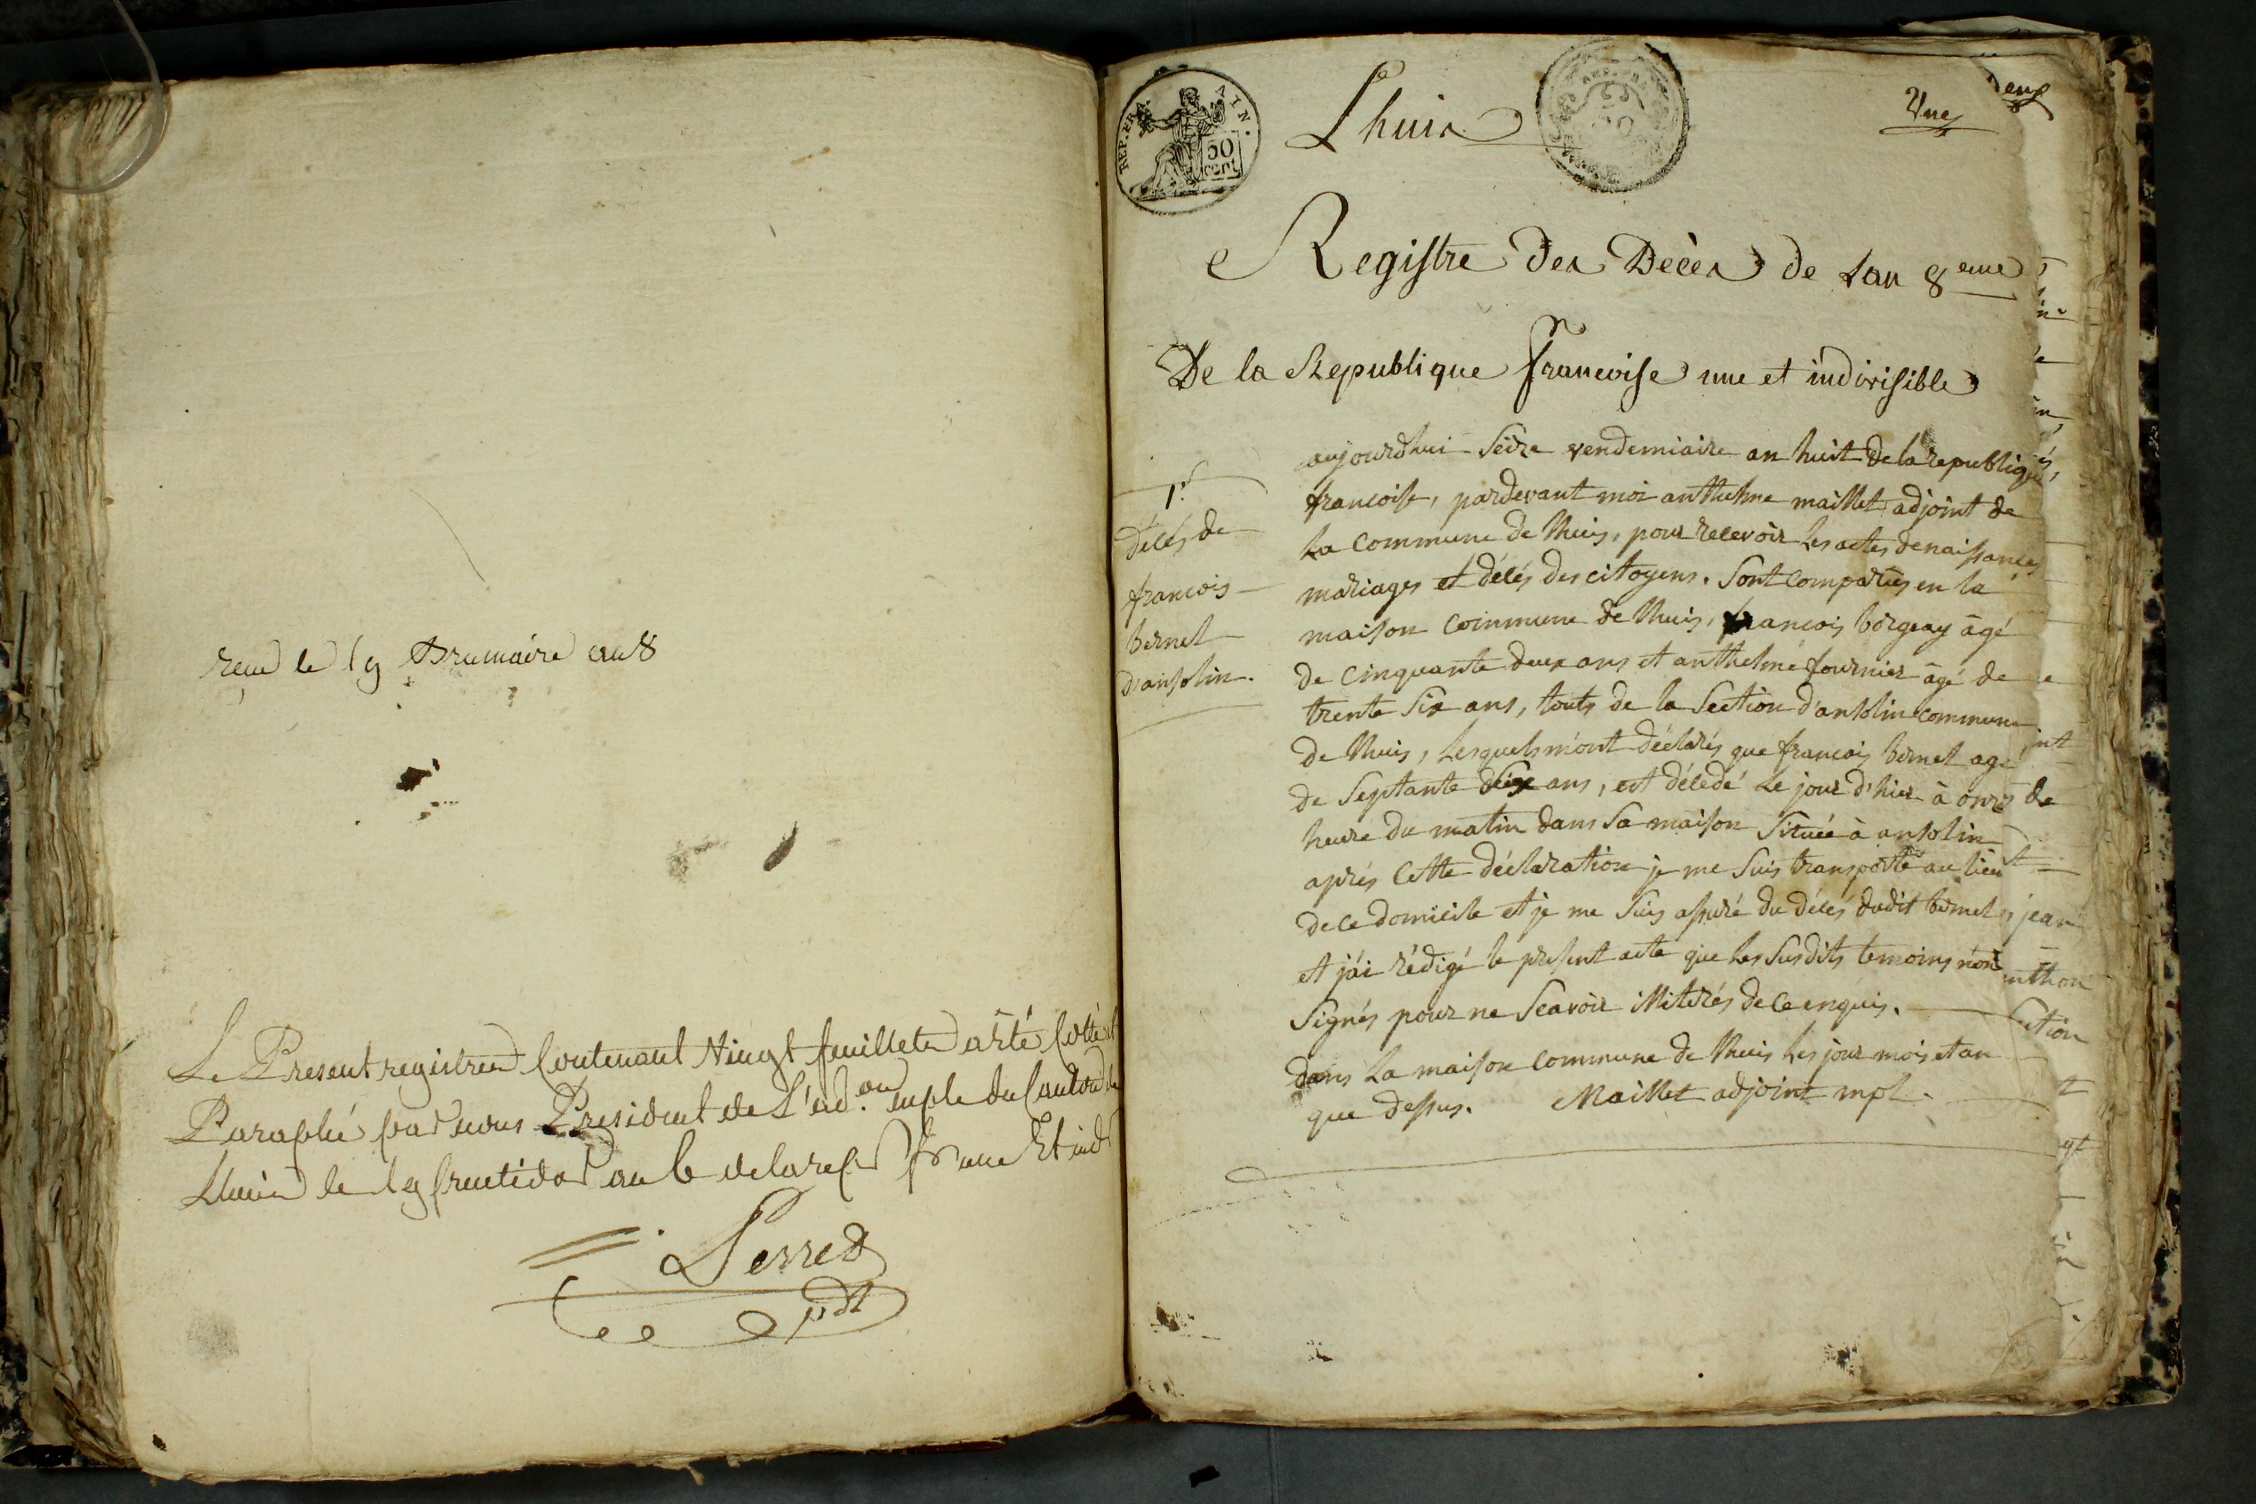 reçu le 19 Brumaire an 8
Le Present registre Contenant Vingt feuillets a êté Cotté et
Paraphé par nous President de L'ad.on mple du Canton de
Lhuis le 19 fructidor an 6 de la rep fr une Et ind
Perret
pdt
REP. FRA. AIN.
50
cent
Lhuis
Une
deux
Registre des Décès de Lan 8eme
De la Republique francoise une et indivisible
1.r
décés de
francois
bernet
d'ansolin.
aujourdhui Seize vendemiaire an huit de la republique
francoise, pardevant moi anthelme maillet adjoint de
La Commune de lhuis, pour recevoir les actes de naissances
mariages et décés des citoyens. Sont comparus en la
maison Commune de lhuis, francois borgeay âgé
de cinquante deux ans et anthelme fournier âgé de
trente Six ans, touts de la Section d'ansolin commune
de lhuis, Lesquels m'ont déclarés que francois bernet agé
de Septante ans, est décedé Le jour d'hier à onze
heure du matin dans Sa maison Située à ansolin
aprés Cette déclaration je me Suis transporté au lieu
de ce domicile et je me Suis assuré du décés dudit bernet
et j'ai rédigé le present acte que Les Susdits temoins n'ont
Signés pour ne Scavoir illiterés de ce enquis.
dans La maison commune de lhuis les jour mois et an
que dessus. Maillet adjoint mpl.